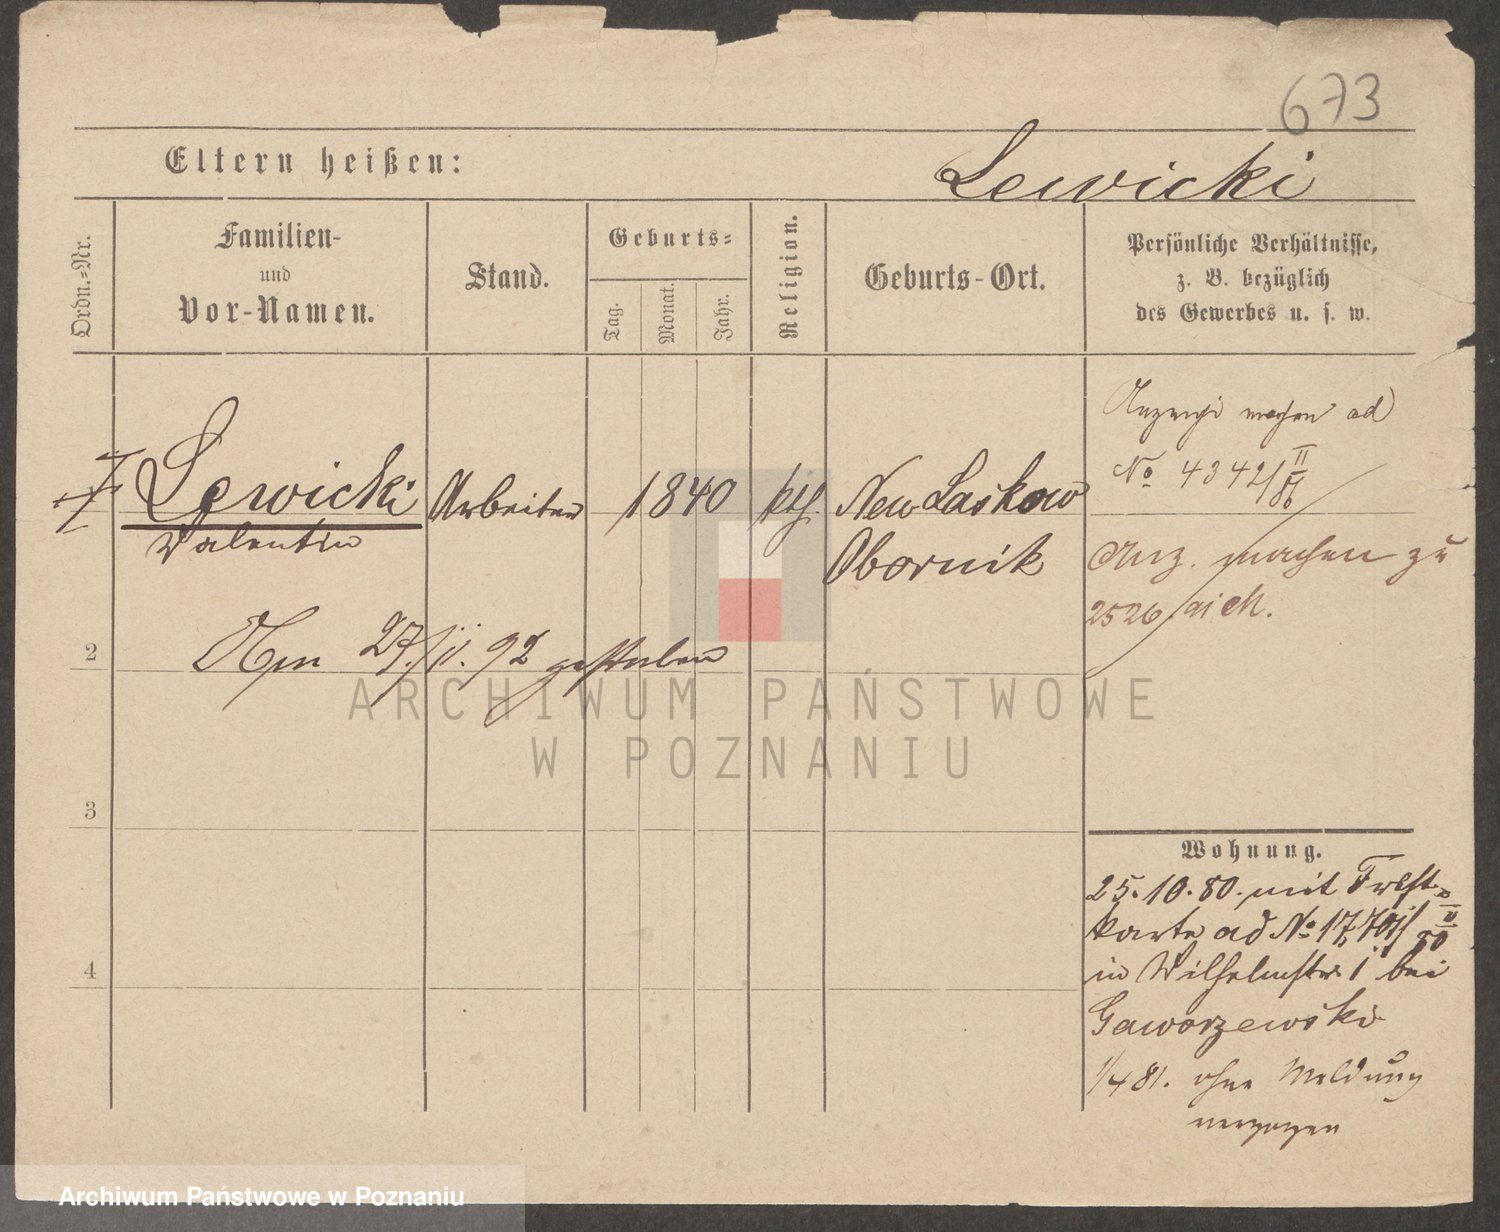 673
Eltern heißen:
Lewicki
Ordn.-Nr.
Familien-
und
Vor-Namen.
Stand.
Geburts-
Tag.
Monat.
Jahr.
Religion.
Geburts-Ort.
Persönliche Verhältnisse,
z. B. bezüglich
des Gewerbes u. s. w.
Lewicki
Valentin
Arbeiter
1840
kth.
Neu Laskow
Obornik
Am 27/11. 92 gestorben
Anzeige machen ad
No 4342/II 86
Anz. machen zu
2526
2
3
4
Wohnung.
25.10.80. mit
karte ad No
in Wilhelmstr. 1 bei
Gaworzewski
1/4 81. ohne Meldung
verzogen
ARCHIWUM PAŃSTWOWE
W POZNANIU
Archiwum Państwowe w Poznaniu